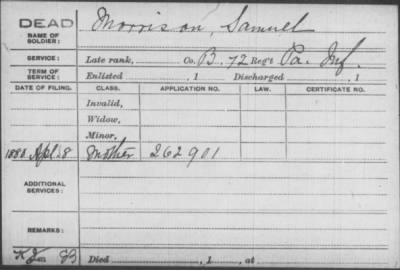 DEAD
NAME OF SOLDIER: Morrison, Samuel
SERVICE: Late rank, Co. B. 72 Reg't Pa. Inf.
TERM OF SERVICE: Enlisted , 1 Discharged , 1
DATE OF FILING. CLASS. APPLICATION NO. LAW. CERTIFICATE NO.
Invalid,
Widow,
Minor,
1880 Apl 28 Mother 262901
ADDITIONAL SERVICES:
REMARKS:
Died , 1 , at